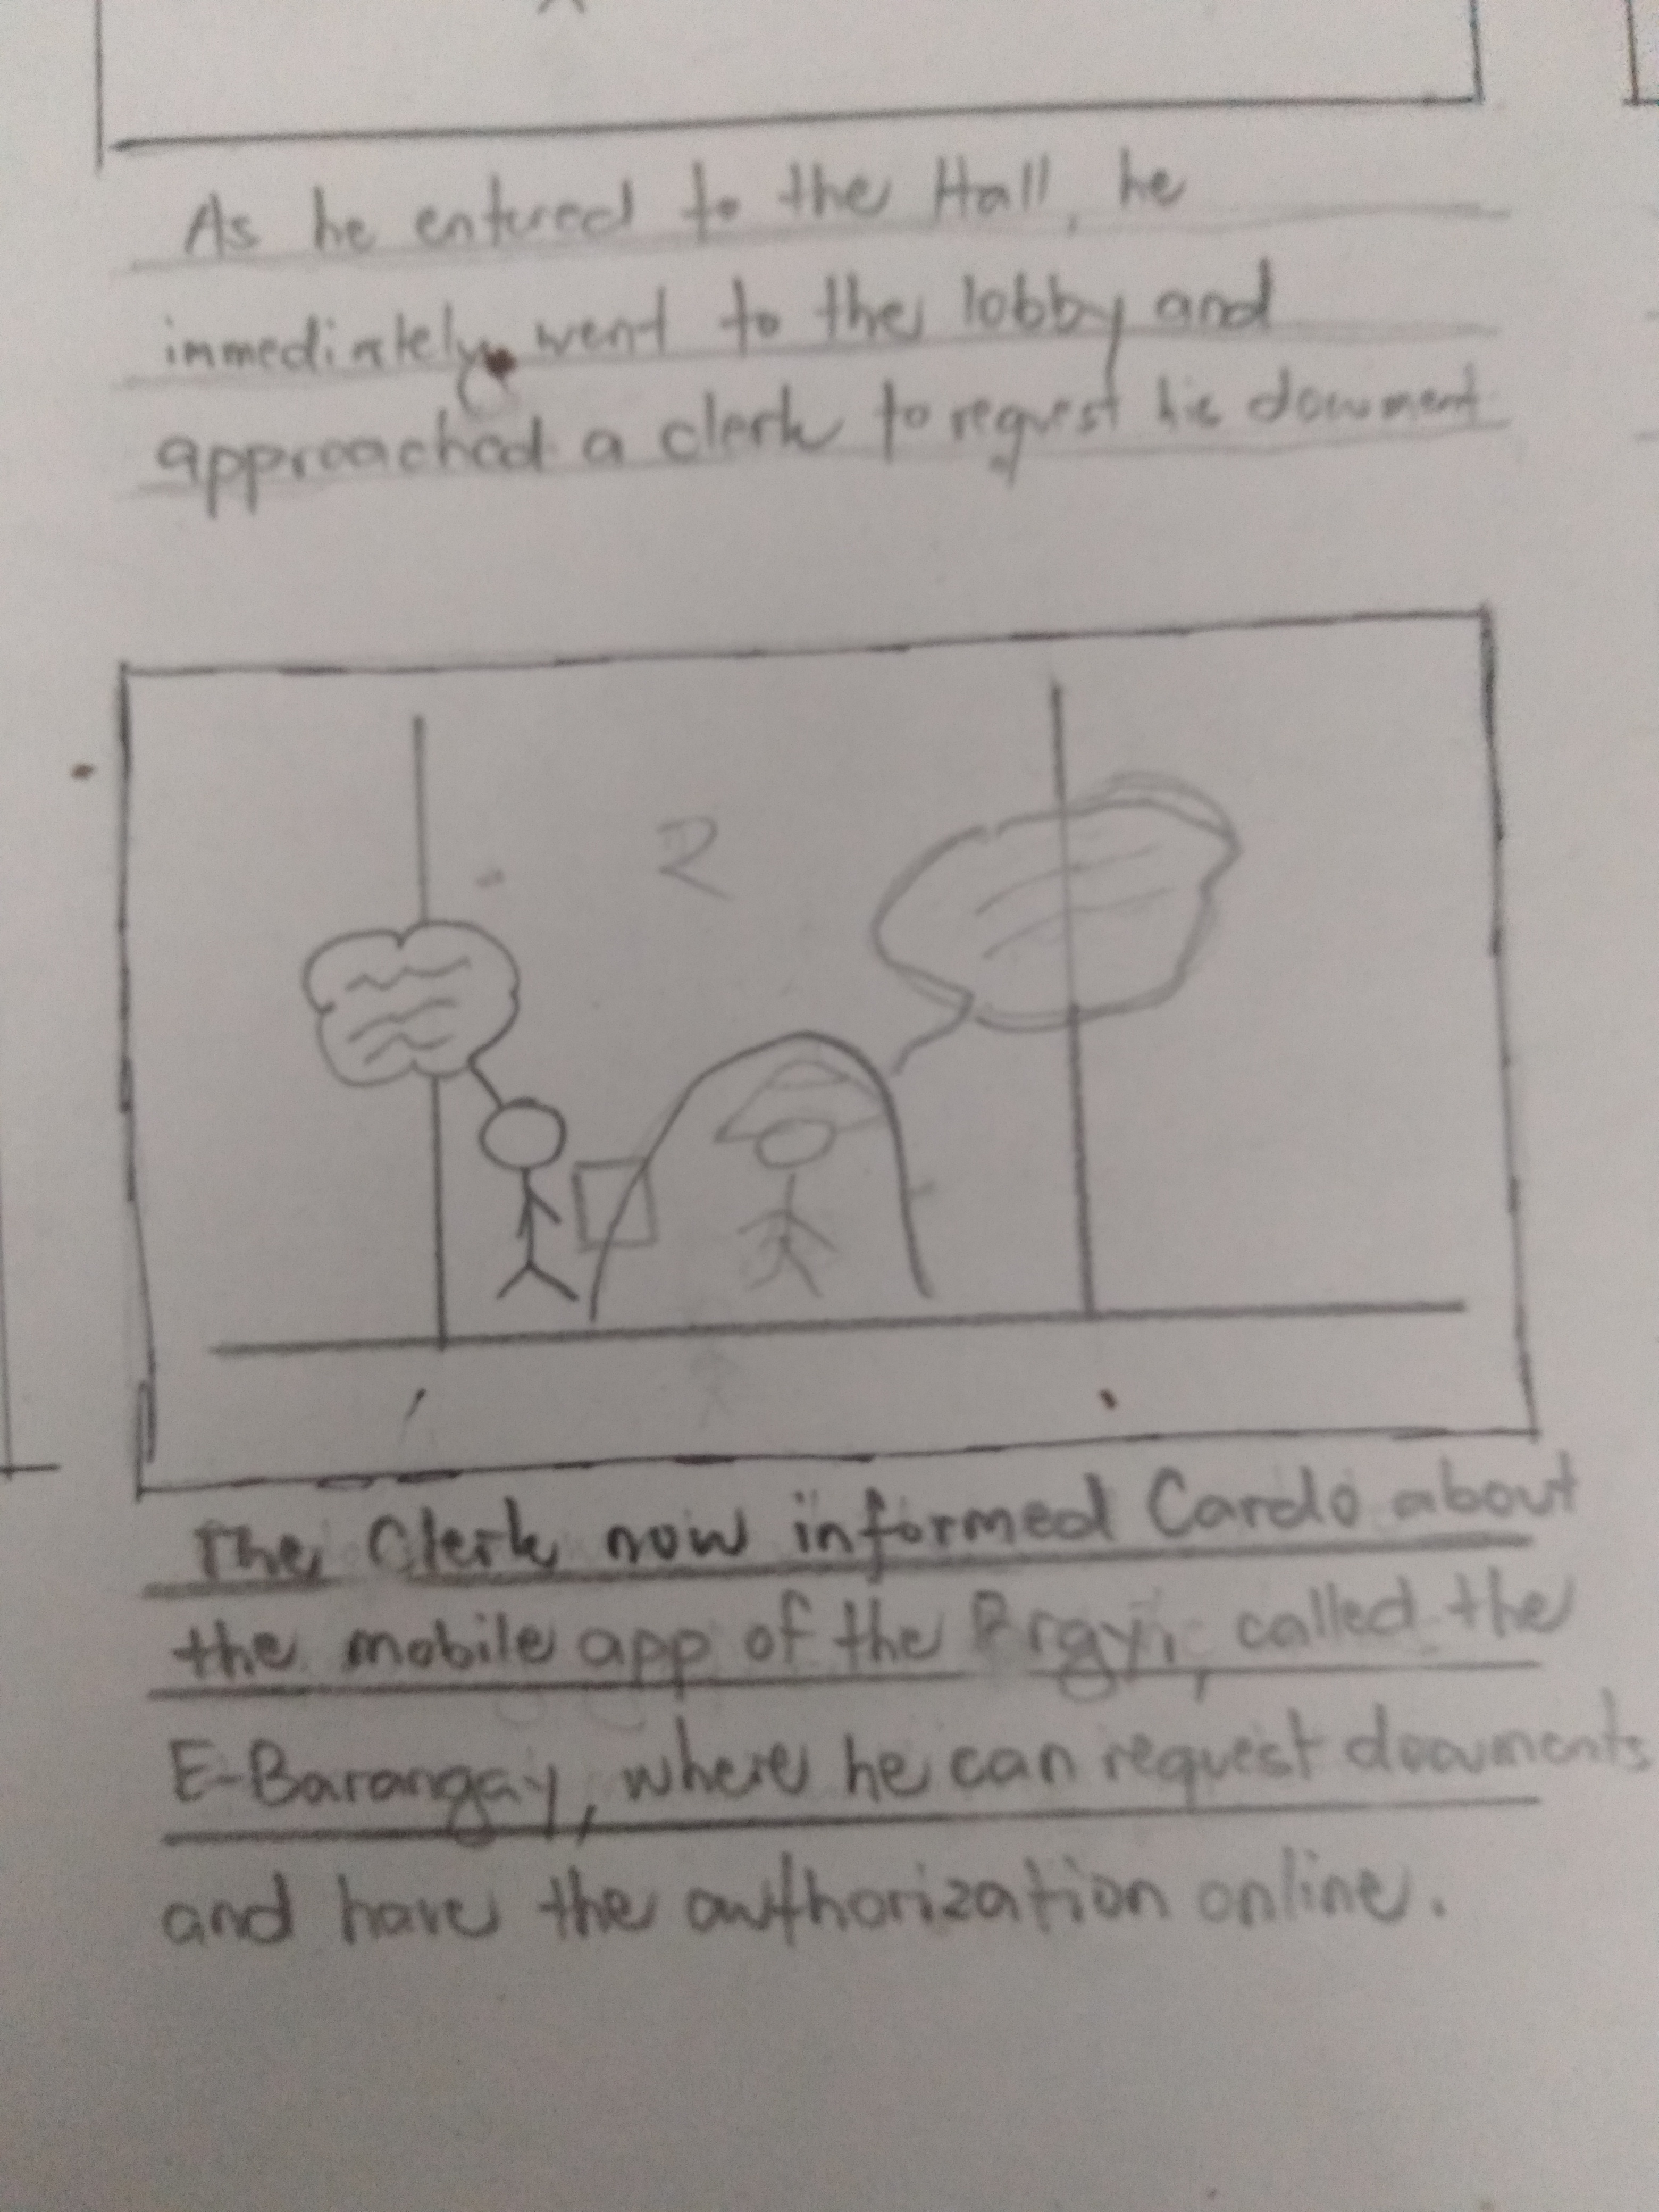 As he entered to the Hall, he
immediately went to the lobby and
approached a clerk to request his document
2
The Clerk now informed Cardo about
the mobile app of the Brgy., called the
E-Barangay, where he can request documents
and have the authorization online.